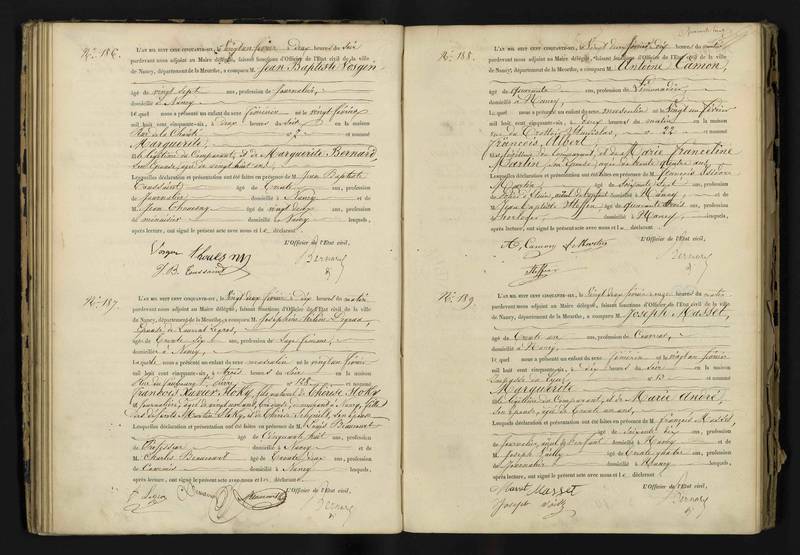 No. 186.
L'AN MIL HUIT CENT CINQUANTE-SIX, le vingt un février à deux heures du soir
pardevant nous adjoint au Maire délégué, faisant fonctions d'Officier de l'Etat civil de la ville
de Nancy, département de la Meurthe, a comparu M. Jean Baptiste Vosgin
âgé de vingt sept ans, profession de journalier,
domicilié à Nancy
Lequel nous a présenté un enfant du sexe féminin né le vingt février
mil huit cent cinquante-six, à deux heures du soir en la maison
Rue de la Charité n° 2 et nommé
Marguerite,
fille légitime du Comparant, et de Marguerite Bernard,
son épouse, âgée de vingt huit ans,
Lesquelles déclaration et présentation ont été faites en présence de M. Jean Baptiste
Toussaint âgé de trente ans, profession
de journalier domicilié à Nancy et de
M. Jean âgé de vingt ans, profession
de menuisier domicilié à Nancy lesquels,
après lecture, ont signé le présent acte avec nous et le déclarant
L'Officier de l'Etat civil,
J B Toussaint
Bernard
No. 187.
L'AN MIL HUIT CENT CINQUANTE-SIX, le vingt deux février à dix heures du matin
pardevant nous adjoint au Maire délégué, faisant fonctions d'Officier de l'Etat civil de la ville
de Nancy, département de la Meurthe, a comparu M. Joséphine
Epouse de Laurent Legros,
âgé de trente six ans, profession de Sage femme,
domicilié à Nancy,
Lequel nous a présenté un enfant du sexe masculin né le vingt un février
mil huit cent cinquante-six, à heures du soir en la maison
Rue du faubourg St. Pierre n° et nommé
François Xavier fils naturel de Thérèse
Lesquelles déclaration et présentation ont été faites en présence de M. Louis Beaucourt
âgé de Cinquante huit ans, profession
de Professeur domicilié à Nancy et de
M. Charles Beaucourt âgé de trente deux ans, profession
de Commis domicilié à Nancy lesquels,
après lecture, ont signé le présent acte avec nous et le déclarant
L'Officier de l'Etat civil,
Bernard
No. 188.
L'AN MIL HUIT CENT CINQUANTE-SIX, le vingt deux février dix heures du matin
pardevant nous adjoint au Maire délégué, faisant fonctions d'Officier de l'Etat civil de la ville
de Nancy, département de la Meurthe, a comparu M. Antoine Camon,
âgé de quarante ans, profession de Limonadier,
domicilié à Nancy,
Lequel nous a présenté un enfant du sexe masculin né le vingt un février
mil huit cent cinquante-six, à deux heures du matin en la maison
rue du Trottoir Stanislas, n° 22 et nommé
François Albert,
fils légitime du Comparant, et de Marie Francetine
Martin, son épouse, âgée de trente quatre ans,
Lesquelles déclaration et présentation ont été faites en présence de M. François Isidore
Martin, âgé de soixante sept ans, profession
domicilié à Nancy et de
M. Jean Baptiste Steffen âgé de quarante trois ans, profession
d'horloger, domicilié à Nancy, lesquels,
après lecture, ont signé le présent acte avec nous et le déclarant
L'Officier de l'Etat civil,
A. Camon f. Martin
Steffen
Bernard
No. 189.
L'AN MIL HUIT CENT CINQUANTE-SIX, le vingt deux février à onze heures du matin
pardevant nous adjoint au Maire délégué, faisant fonctions d'Officier de l'Etat civil de la ville
de Nancy, département de la Meurthe, a comparu M. Joseph Masset,
âgé de trente un ans, profession de
domicilié à Nancy,
Lequel nous a présenté un enfant du sexe féminin né le vingt un février
mil huit cent cinquante-six, à dix heures du soir en la maison
n° 13 et nommé
Marguerite
fille légitime du Comparant, et de Marie André,
son épouse, âgée de trente un ans,
Lesquelles déclaration et présentation ont été faites en présence de M. François Masset,
âgé de soixante dix ans, profession
de journalier, ayeul de l'enfant domicilié à Nancy et de
M. Joseph âgé de trente quatre ans, profession
de journalier domicilié à Nancy lesquels,
après lecture, ont signé le présent acte avec nous et le déclarant
L'Officier de l'Etat civil,
Masset Masset
Joseph
Bernard